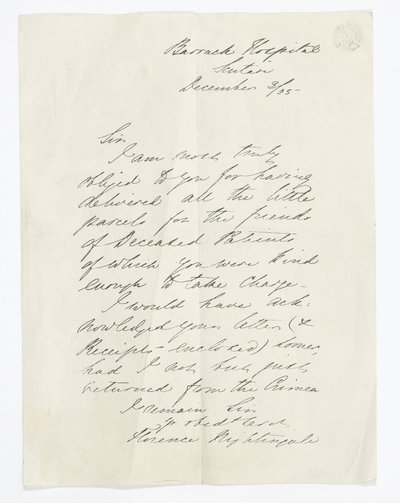 Barrack Hospital
Scutari
December 3/55
Sir
I am most truly
obliged to you for having
delivered all the little
parcels for the friends
of Deceased Patients
of which you were kind
enough to take charge.
I would have ack-
nowledged your letter (&
Receipts enclosed) sooner,
had I not but just
returned from the Crimea
I remain Sir
yr obedt servt
Florence Nightingale